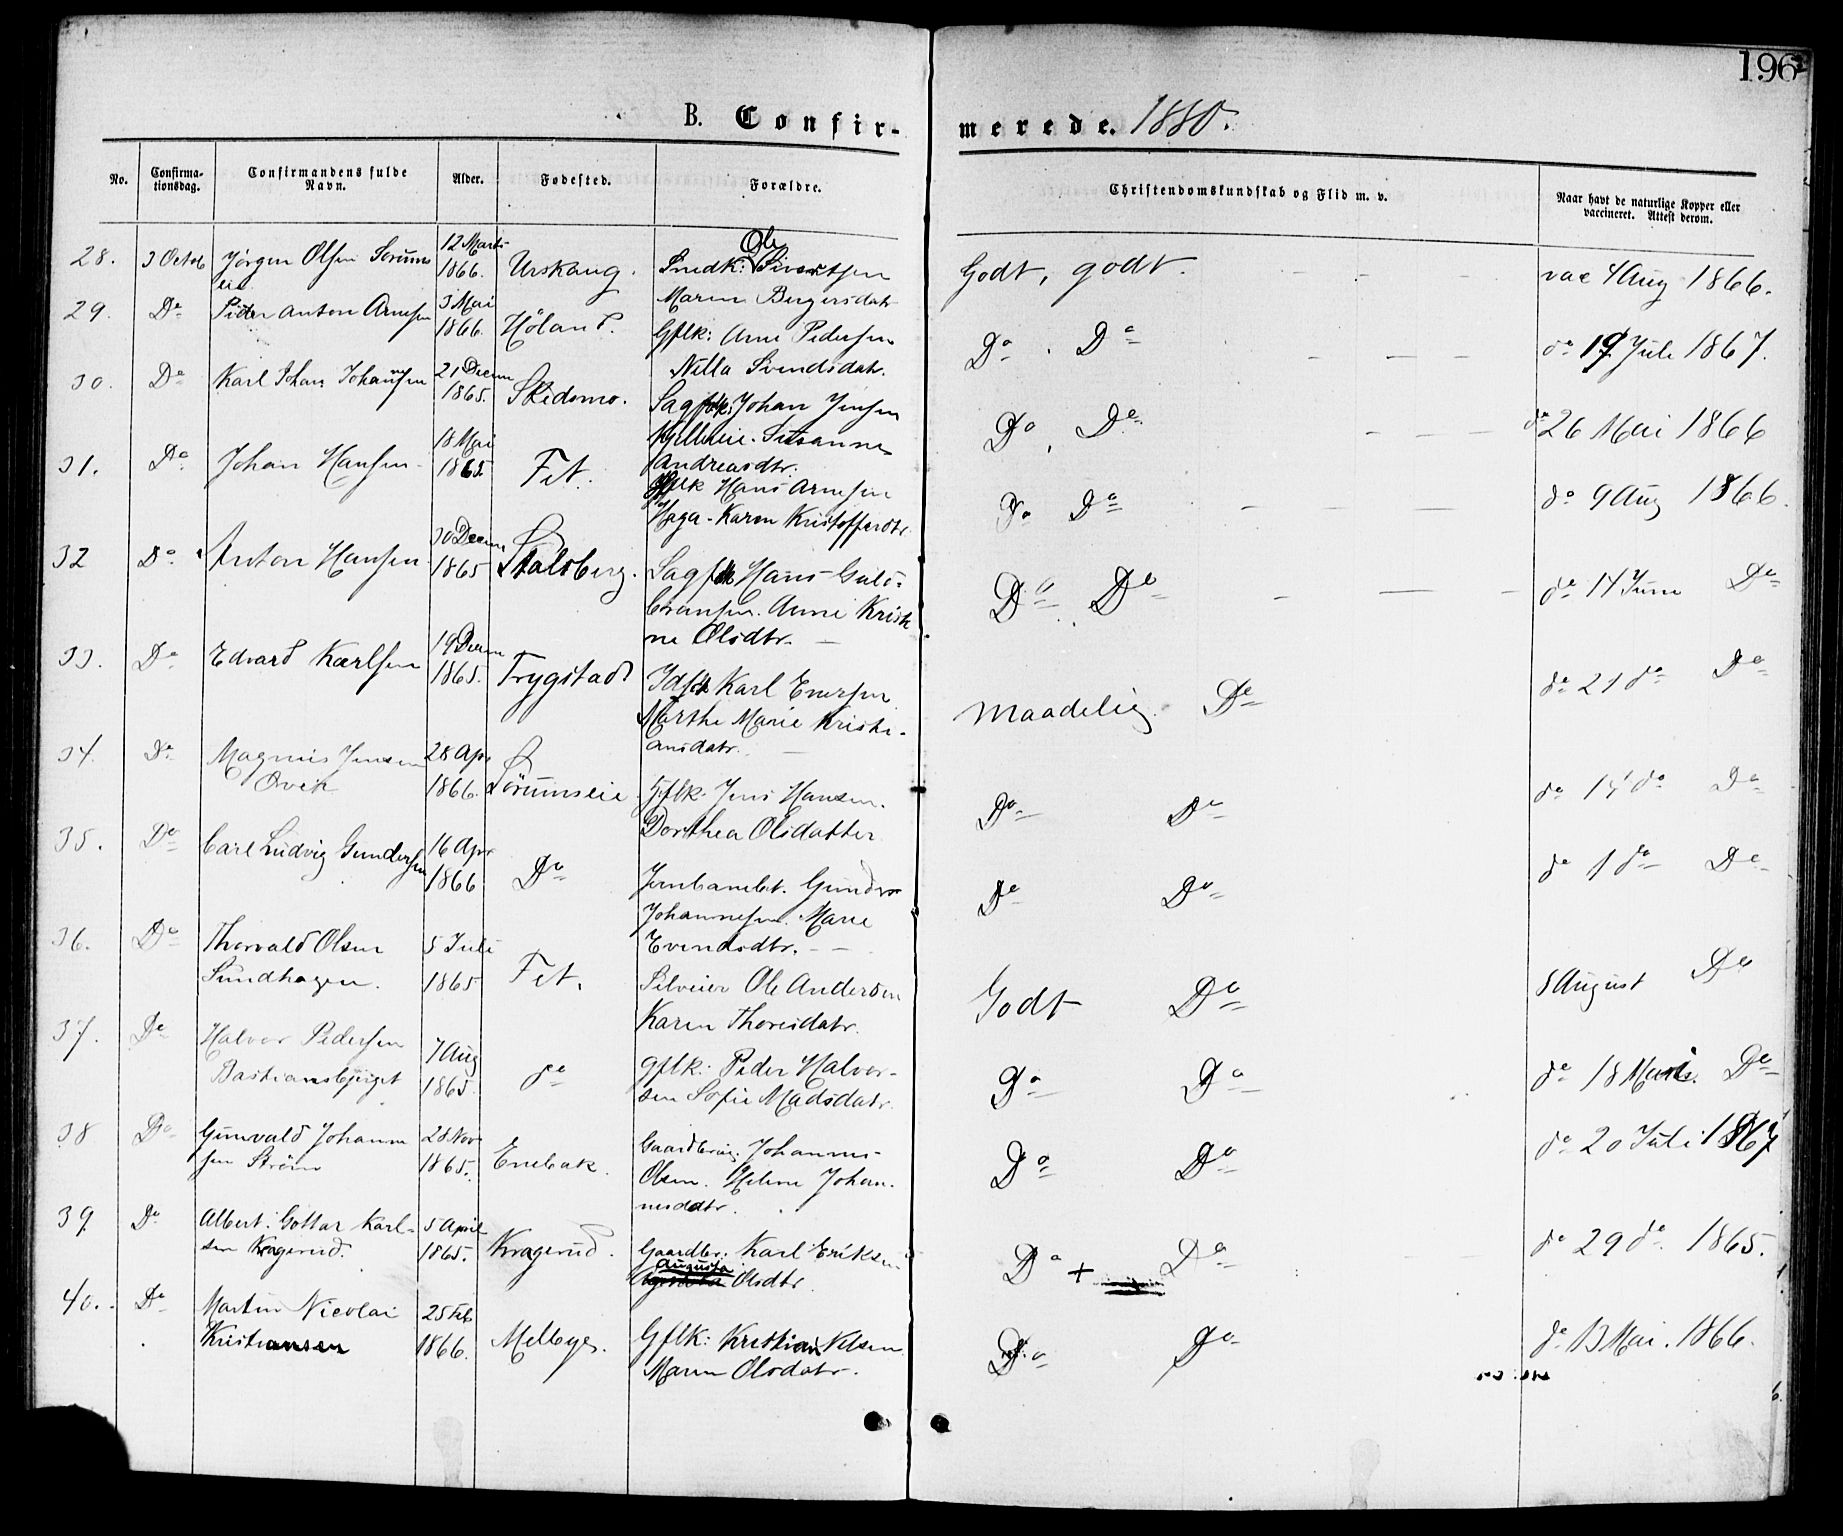 196
B. Confir-
merede. 1880.
No.
Confirma-
tionsdag.
Confirmandens fulde
Navn.
Alder.
Fødested.
Forældre.
Christendomskundskab og Flid m. v.
Naar havt de naturlige Kopper eller
vaccineret. Attest derom.
28. 3 Octob Jørgen Olsen Sørums
eie 12 Marts
1866. Urskoug. Smedk: Ole Sivertsen
Maren Bergersdatr Godt, godt. vac 4 Aug 1866.
29. Do Peder Anton Arnesen 3 Mai
1866. Høland. Gflk: Arne Pedersen
Nilla Svendsdatr. Do . Do do 19 Juli 1867.
30. Do Karl Johan Johannesen 21 Decem
1865. Skedsmo. Sagflk: Johan Jensen
Susanne
Andreasdtr. Do , Do do 26 Mai 1866
31. Do Johan Hansen 18 Mai
1865 Fet. Gflk Hans Arnesen
Haga - Karen Kristoffersdtr Do Do do 9 Aug 1866.
32 Do Anton Hansen 30 Decem
1865 Stalsberg. Sagflk Hans Guld-
bransen. Anne Kristi
ne Olsdtr. Do . Do do 14 Juni Do
33. Do Edvard Karlsen 19 Decem
1865. Trygstad Karl Enersen
Marthe Marie Kristi-
ansdatr. Maadelig. Do do 21 do Do
34. Do Magnus Jensen
Ovek 28 Apr
1866. Sørumseie Gflk. Jens Hansen.
Dorthea Olsdatter Do Do do 14 do Do
35. Do Carl Ludvig Gundersen 16 Apr
1866 Do Jernbanebet. Gunder
Johannesen. Marie
Evendsdtr. Do Do do 1 do Do
36. Do Thorvald Olsen
Sundhagen. 5 Juli
1865 Fet. Selveier Ole Andersen
Karen Thoresdatr. Godt Do 8 August Do
37. Do Halvor Pedersen
Bastiansbjerget 7 Aug
1865 do Gflk: Peder Halvor-
sen Sofie Madsdatr. Do Do do 18 Marts. Do
38 Do Gunvald Johanne
sen Strøm 28 Nov
1865. Enebak. Gaardbrug. Johannes
Olsen. Helene Johan-
nesdatr. Do Do do 20 Juli 1867
39 Do Albert Gottar Karl-
sen Kragerud. 5 April
1865. Kragerud. Gaardbr: Karl Eriksen
Augusta
Olsdtr Do + Do do 29 do 1865.
40. Do Martin Nicolai
Kristiansen 25 Feb
1866. Melbye. Gflk: Kristian Nelsen
Maren Olsdatr. Do Do do 13 Mai. 1866.